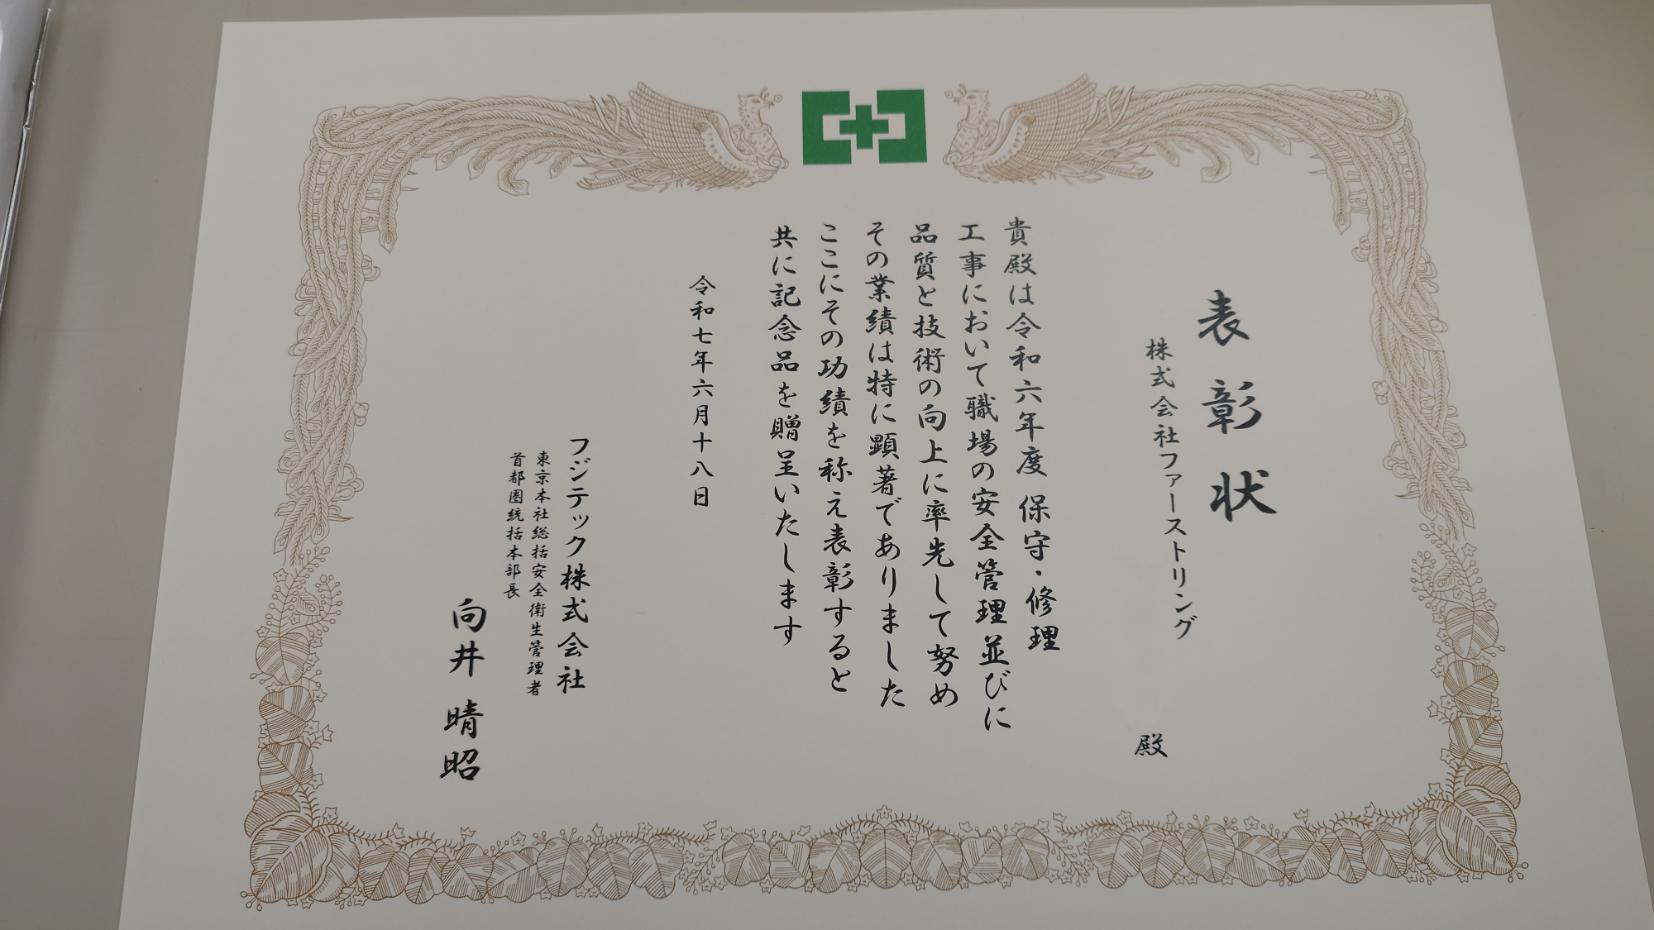 表彰状
株式会社ファーストリング 殿
貴殿は令和六年度 保守・修理
工事において職場の安全管理並びに
品質と技術の向上に率先して努め
その業績は特に顕著でありました
ここにその功績を称え表彰すると
共に記念品を贈呈いたします
令和七年六月十八日
フジテック株式会社
東京本社総括安全衛生管理者
首都圏統括本部長
向井 晴昭